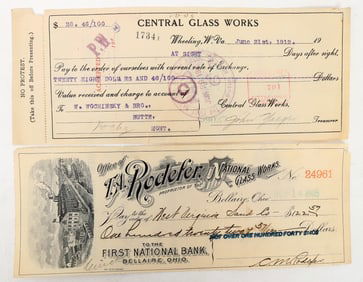 NO PROTEST.
(Take this off Before Presenting.)
$ 28. 46/100
CENTRAL GLASS WORKS
17341
Wheeling, W. Va. June 21st. 1912. 19
P.W
AT SIGHT Days after sight,
Pay to the order of ourselves with current rate of Exchange.
TWENTY EIGHT DOLLARS AND 46/100 Dollars
Value received and charge to account of
To N. WOCHINSKY & BRO., Central Glass Works.
BUTTE, Treasurer
MONT.
701
Office of
T.A. Rodefer,
PROPRIETOR OF
NATIONAL GLASS WORKS.
No. 24961
Bellaire, Ohio
Pay to the order of West Virginia Sand Co $122 57
One hundred twenty two 57 Dollars
NOT OVER ONE HUNDRED FORTY $140$
TO THE
FIRST NATIONAL BANK,
BELLAIRE, OHIO.